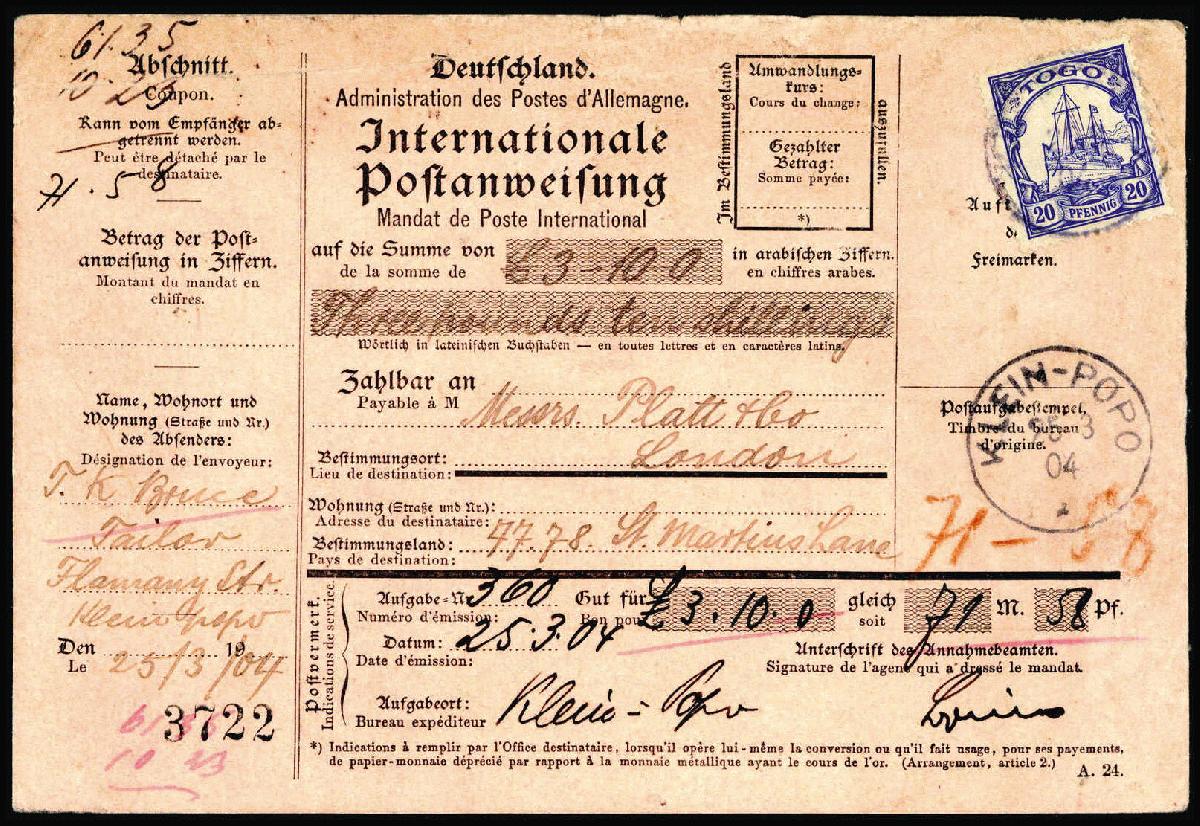 61.35
10 23
71.58
Abschnitt.
Coupon.
Kann vom Empfänger ab=
getrennt werden.
Peut être détaché par le
destinataire.
Betrag der Post=
anweisung in Ziffern.
Montant du mandat en
chiffres.
Name, Wohnort und
Wohnung (Straße und Nr.)
des Absenders:
Désignation de l'envoyeur:
T. K Bruce
Tailor
Flamany Str.
Klein popo
Den 19
Le 25/3/04
3722
61 35
10 23
Deutschland.
Administration des Postes d'Allemagne.
Internationale
Postanweisung
Mandat de Poste International
Im Bestimmungsland
Umwandlungs=
kurs:
Cours du change:
Gezahlter
Betrag:
Somme payée:
*)
auszufüllen.
auf die Summe von
de la somme de
£3-10 0
in arabischen Ziffern.
en chiffres arabes.
Three pounds ten shillings
Wörtlich in lateinischen Buchstaben — en toutes lettres et en caractères latins.
Zahlbar an
Payable à M
Messrs. Platt & Co
Bestimmungsort:
Lieu de destination:
London
Wohnung (Straße und Nr.):
Adresse du destinataire:
77.78. St. Martins Lane
Bestimmungsland:
Pays de destination:
Postvermerk.
Indications de service.
Aufgabe-Nr 360
Numéro d'émission:
Gut für
Bon pour
£ 3.10.0
gleich
soit
71 M. 58 Pf.
Datum: 25.3.04
Date d'émission:
Unterschrift des Annahmebeamten.
Signature de l'agent qui a dressé le mandat.
Aufgabeort:
Bureau expéditeur
Klein=Popo
*) Indications à remplir par l'Office destinataire, lorsqu'il opère lui-même la conversion ou qu'il fait usage, pour ses payements,
de papier-monnaie déprécié par rapport à la monnaie métallique ayant le cours de l'or. (Arrangement, article 2.)
A. 24.
TOGO
20 PFENNIG 20
Freimarken.
Postaufgabestempel.
Timbre du bureau
d'origine.
KLEIN-POPO
3
04
71-58